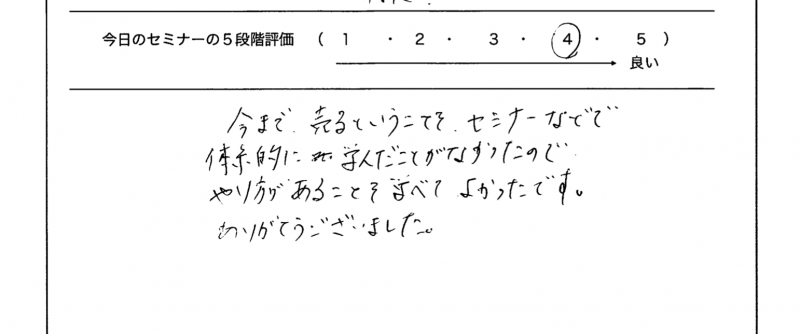 今日のセミナーの5段階評価 ( 1 ・ 2 ・ 3 ・ 4 ・ 5 )
良い
今まで、売るということを、セミナーなどで
体系的に学んだことがなかったので
やり方があることを学べてよかったです。
ありがとうございました。